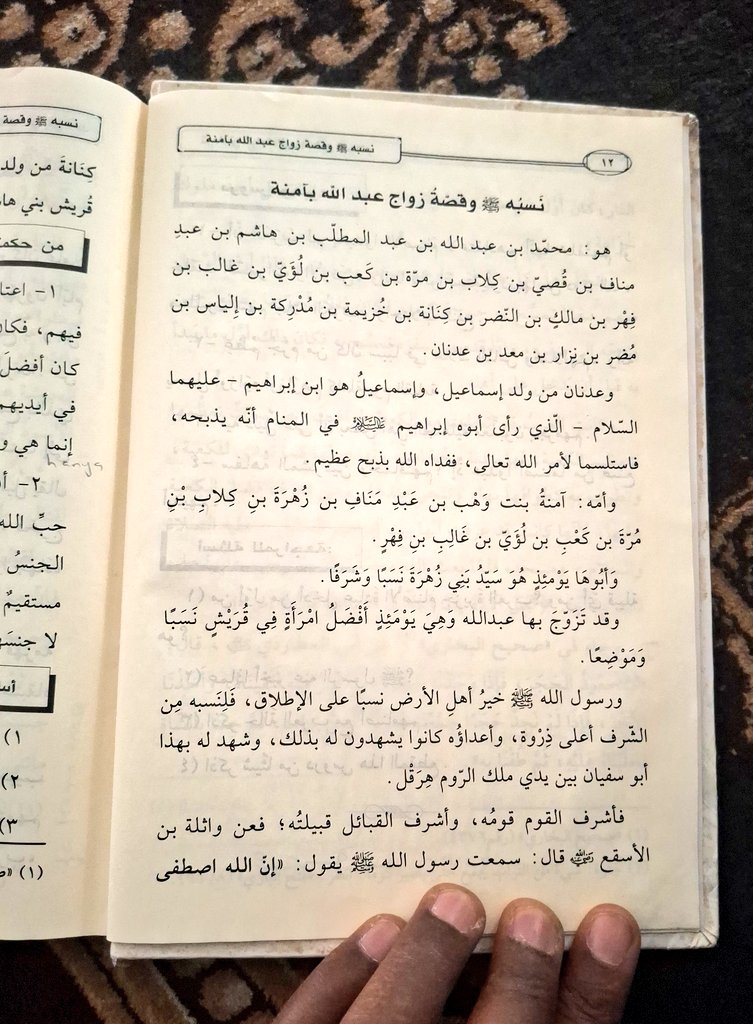 نسبه ﷺ وقصة زواج عبد الله بآمنة
١٢
نَسبه ﷺ وقصّةُ زواج عبد الله بآمنة
هو: محمّد بن عبد الله بن عبد المطلّب بن هاشم بن عبدِ
مناف بن قُصيّ بن كِلاب بن مرّة بن كَعب بن لُؤَيّ بن غالب بن
فِهْر بن مالكٍ بن النّضر بن كِنَانة بن خُزيمة بن مُدْرِكة بن إلياس بن
مُضر بن نِزار بن معد بن عدنان.
وعدنان من ولد إسماعيل، وإسماعيلُ هو ابن إبراهيم – عليهما
السّلام – الّذي رأى أبوه إبراهيم عليه السلام في المنام أنّه يذبحه،
فاستلسما لأمر الله تعالى، ففداه الله بذبح عظيم.
وأمّه: آمنةُ بنت وَهْب بن عَبْدِ مَنَافِ بن زُهْرَةَ بنِ كِلابِ بْنِ
مُرّةَ بن كَعْبِ بن لُؤَيّ بن غَالِبِ بنِ فِهْرٍ.
وَأَبُوهَا يَوْمَئِذٍ هُوَ سَيّدُ بَنِي زُهْرَةَ نَسَبًا وَشَرَفًا.
وقد تَزَوّجَ بها عبدالله وَهِيَ يَوْمَئِذٍ أَفْضَلُ امْرَأَةٍ فِي قُرَيْشٍ نَسَبًا
وَمَوْضِعًا.
ورسول الله ﷺ خيرُ أهلِ الأرض نسبًا على الإطلاق، فَلِنَسبه مِن
الشّرف أعلى ذِرْوة، وأعداؤُه كانوا يشهدون له بذلك، وشهد له بهذا
أبو سفيان بين يدي ملك الرّوم هِرَقْل.
فأشرف القوم قومُه، وأشرف القبائل قبيلتُه؛ فعن واثلة بن
الأسقع رضي الله عنه قال: سمعت رسول الله ﷺ يقول: «إنّ الله اصطفى
نسبه ﷺ وقصة
كِنَانةَ من ولد
قُريش بني ها
من حكم
١- اعتا
فيهم، فكان
كان أفضلَ
في أيديهم
إنما هي و
hanya
٢- أ
حبِّ الله
الجنسُ
مستقيمٌ
لا جنسَه
أس
١)
٢)
٣)
(١) «ص